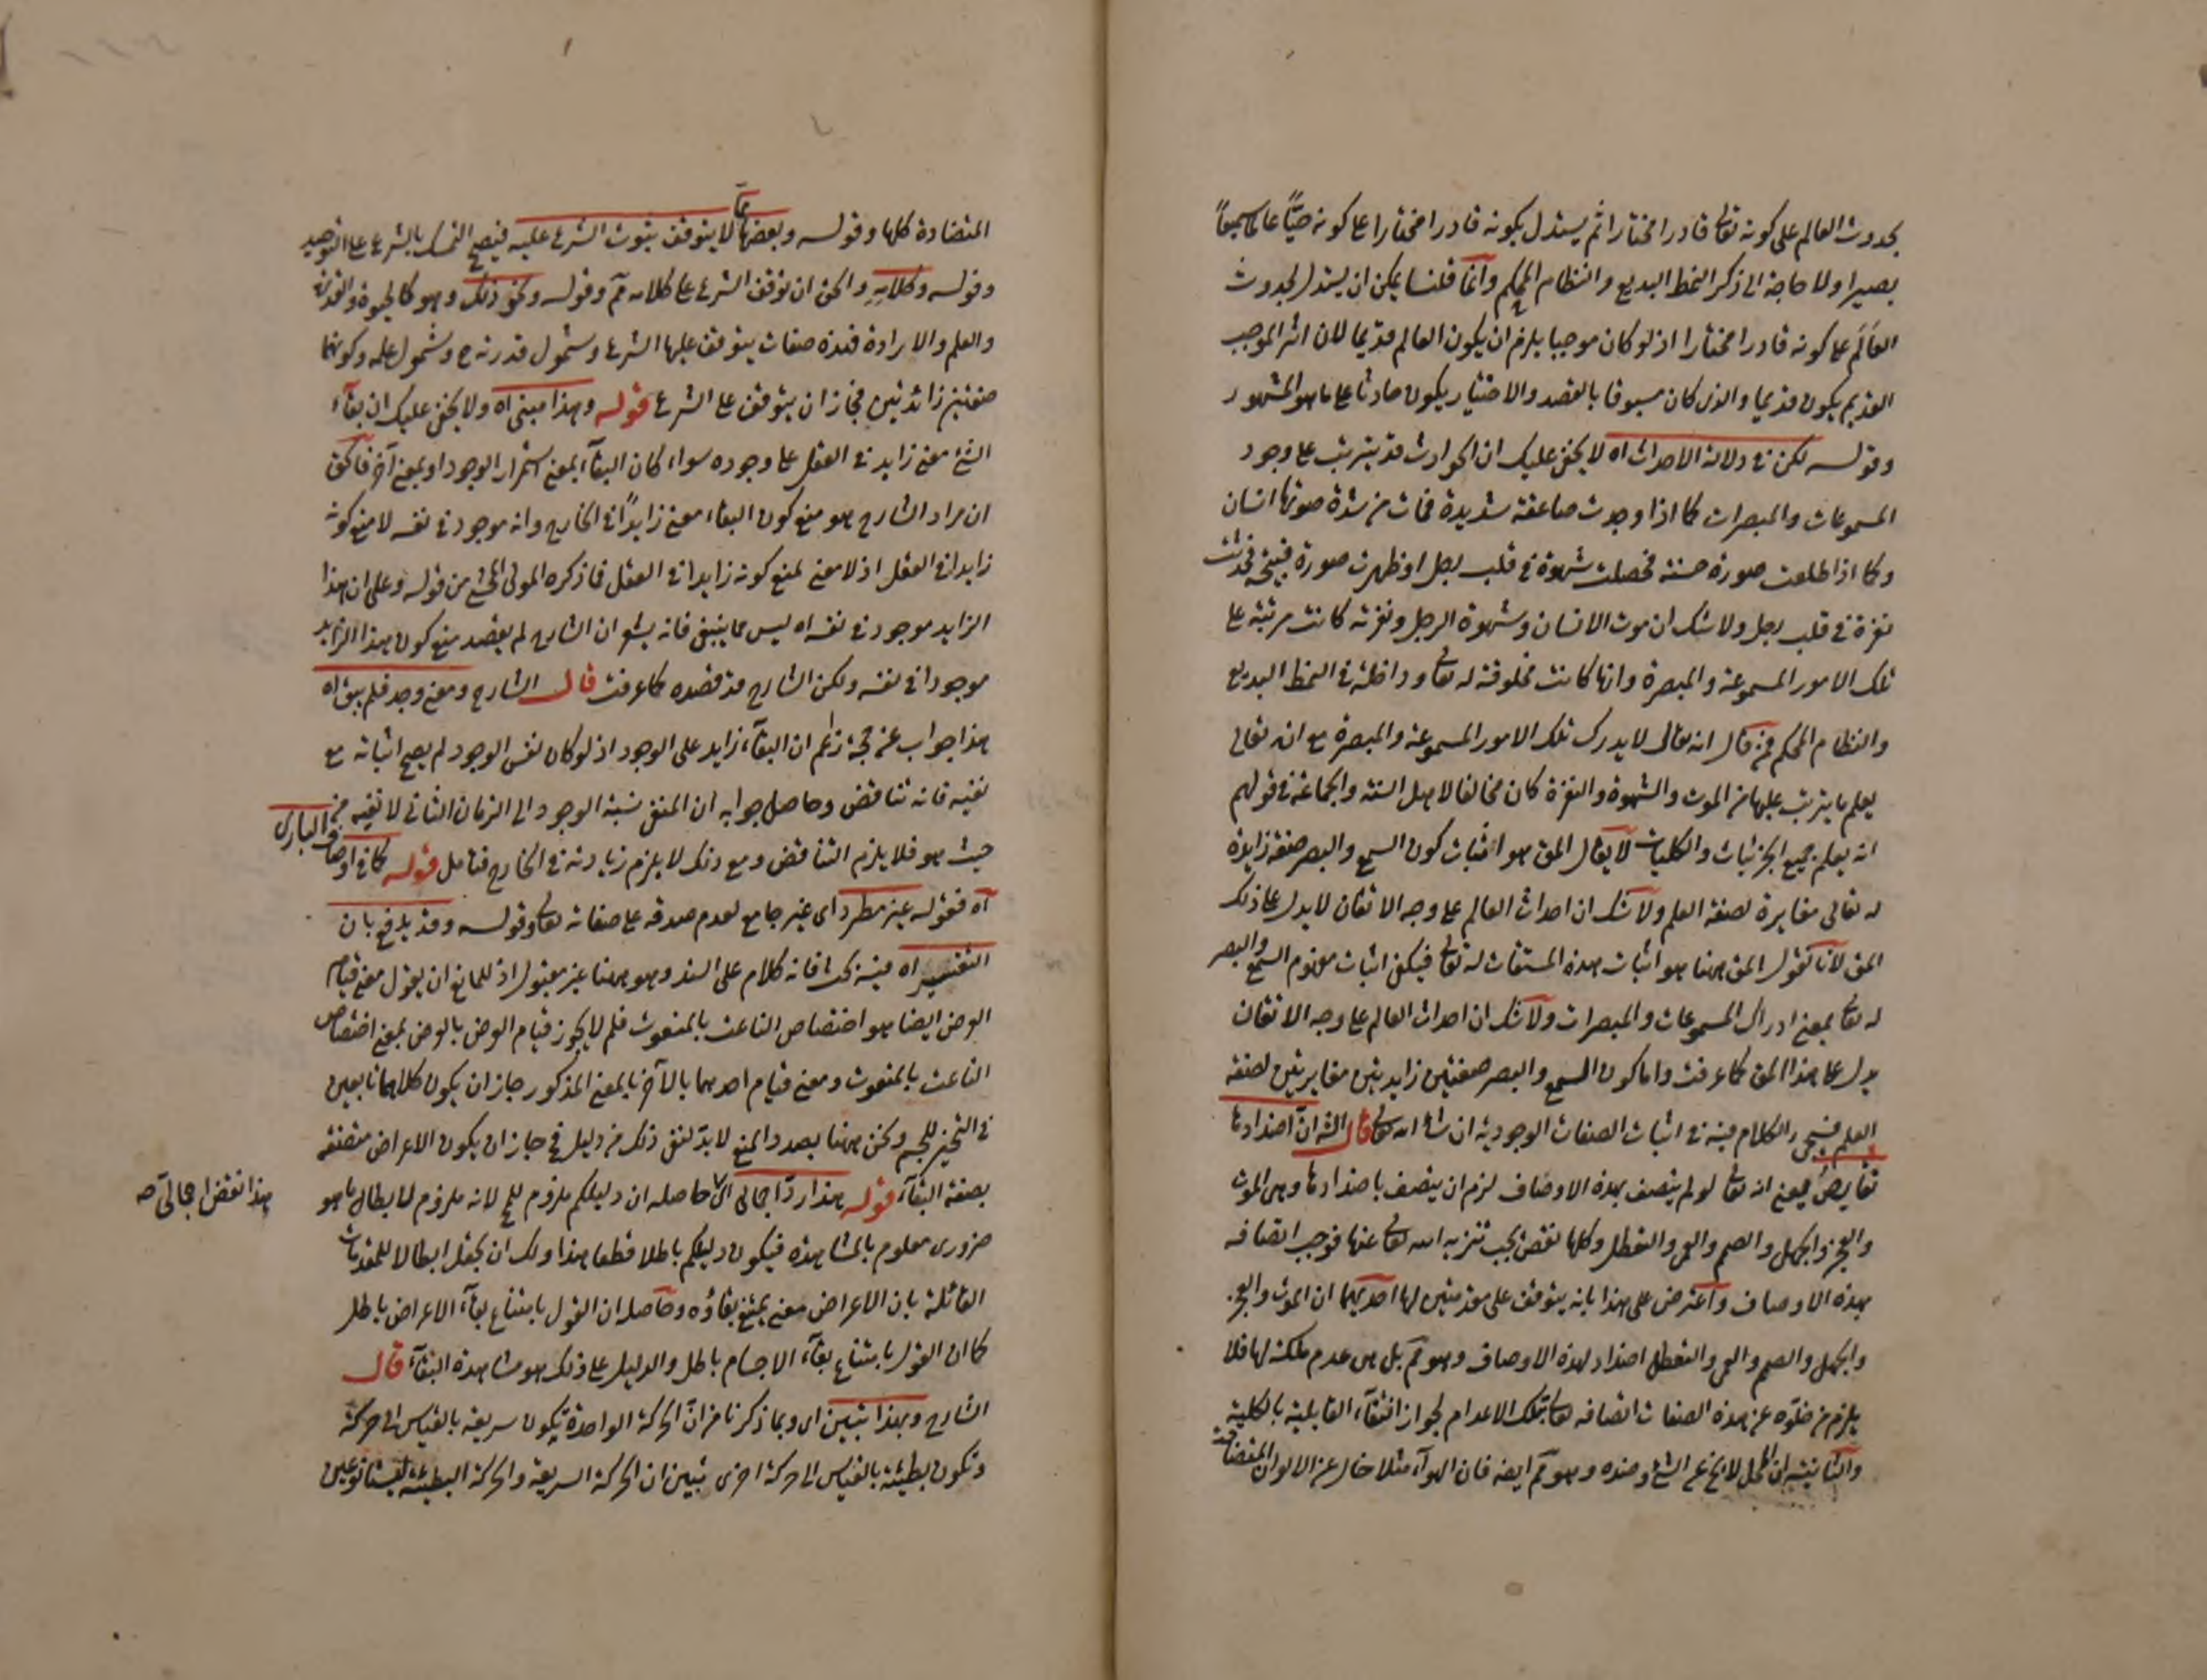 بحدوث العالم على كونه تعالى قادرا مختارا ثم يستدل بكونه قادرا مختارا على كونه حيًّا عالما سميعاً
بصيرا ولا حاجة الى ذكر النمط البديع والنظام المحكم وانما قلنا يمكن ان يستدل بحدوث
العَالَم على كونه قادرا مختارا اذ لو كان موجبا يلزم ان يكون العالم قديما لان اثر الموجب
القديم يكون قديما والذى كان مسبوقا بالقصد والاختيار يكون حادثا على ما هو المشهور
وقوله لكن فى دلالة الاحداث اه لا يخفى عليك ان الحوادث قد يترتب على وجود
المسموعات والمبصرات كما اذا وجدت صاعقة شديدة فمات من شدة صوتها انسان
وكما اذا طلعت صورة حسنة فحصلت شهوة فى قلب رجل او ظهرت صورة قبيحة فحدثت
نفرة فى قلب رجل ولا شك ان موت الانسان وشهوة الرجل ونفرته كانت مرتبة على
تلك الامور المسموعة والمبصرة وانها كانت مخلوقة له تعالى وداخلة فى النمط البديع
والنظام المحكم فمن قال انه تعالى لا يدرك تلك الامور المسموعة والمبصرة مع انه تعالى
يعلم ما يترتب عليها من الموت والشهوة والنفرة كان مخالفا لاهل السنة والجماعة فى قولهم
انه يعلم جميع الجزئيات والكليات لا يقال المق هو اثبات كون السمع والبصر صفة زايدة
له تعالى مغايرة لصفة العلم ولا شك ان احداث العالم على وجه الاتقان لا يدل على ذلك
المق لانا نقول المق ههنا هو اثبات هذه المشتقات له تعالى فيكفى اثبات مفهوم السمع والبصر
له تعالى بمعنى ادراك المسموعات والمبصرات ولا شك ان احداث العالم على وجه الاتقان
يدل على هذا المق كما عرفت واما كون السمع والبصر صفتين زايدتين مغايرتين لصفة
العلم فسيجىء الكلام فيه فى اثبات الصفات الوجودية ان شاء الله تعالى قال الش ان اضدادها
نقايص بمعنى انه تعالى لو لم يتصف بهذه الاوصاف لزم ان يتصف باضدادها وهى الموت
والعجز والجهل والصم والعمى والتعطل وكلها نقص يجب تنزيه الله تعالى عنها فوجب اتصافه
بهذه الاوصاف واعترض على هذا بانه يتوقف على مقدمتين لها احديهما ان الموت والعجز
والجهل والصم والعمى والتعطل اضداد لهذه الاوصاف وهو مم بل هى عدم ملكة لها فلا
يلزم من خلوّه عن هذه الصفات اتصافه تعالى بتلك الاعدام لجواز انتفاء القابلية بالكلية
والثانية ان المحل لا يخ عن الشئ وضده وهو مم ايضه فان الهواء مثلا خال عن الالوان المتضادة
المتضادة كلها وقوله وبعضها مما لا يتوقف ثبوت الشرع عليه فيصح التمسك بالشرع على التوحيد
وقوله وكلامِهِ والحق ان توقف الشرع على كلامه مم وقوله ونحو ذلك وهو كالحيوة والقدرة
والعلم والارادة فهذه صفات يتوقف عليها الشرع وشمول قدرته ع وشمول علمه وكونهما
صفتين زائدتين فجاز ان يتوقف على الشرع قوله وهذا مبنى اه ولا يخفى عليك ان بقاء
الشئ معنى زايد فى العقل على وجوده سواء كان البقاء بمعنى استمرار الوجود او بمعنى آخر فالحق
ان مراد الشارح هو منع كون البقاء معنى زايدًا فى الخارج وانه موجود فى نفسه لا منع كونه
زايدا فى العقل اذ لا معنى لمنع كونه زايدا فى العقل فما ذكره المولى المحشى من قوله وعلى ان هذا
الزايد موجود فى نفسه اه ليس مما ينبغى فانه يشعر ان الشارح لم يقصد منع كون هذا الزايد
موجودا فى نفسه ولكن الشارح قد قصده كما عرفت قال الشارح ومعنى وجد فلم يبق اه
هذا جواب عن حجة زعم ان البقاء زايد على الوجود اذ لو كان نفس الوجود لم يصح اثباته مع
نفيه فانه تناقض وحاصل جوابه ان المنفى نسبة الوجود الى الزمان الثانى لا نفيه من
حيث هو فلا يلزم التناقض ومع ذلك لا يلزم زيادته فى الخارج فتامل قوله كما فى اوصاف البارى
اه فقوله غير مطرد اى غير جامع لعدم صدقه على صفاته تعالى وقوله وقد يدفع بان
التفسير اه فيه بحث فانه كلام على السند وهو ههنا غير مقبول اذ للمانع ان يقول معنى قيام
العرض ايضا هو اختصاص الناعت بالمنعوت فلم لا يجوز قيام العرض بالعرض بمعنى اختصاص
الناعت بالمنعوت ومعنى قيام احدهما بالآخر بالمعنى المذكور جاز ان يكون كلاهما تابعين
فى التحيز للجسم ونحن ههنا بصدد المنع لا بد لنفى ذلك من دليل فح جاز ان يكون الاعراض متصفة
بصفة البقاء قوله هذا ردّ اجمالى اى حاصله ان دليلكم ملزوم للمح لانه ملزوم لابطال ما هو
ضرورى معلوم بالمشاهدة فيكون دليلكم باطلا قطعا هذا ولك ان تجعل ابطالا للمقدمات
القائلة بان الاعراض معنى يمتنع بقاؤه وحاصله ان القول بامتناع بقاء الاعراض باطل
كما ان القول بامتناع بقاء الاجسام باطل والدليل على ذلك هو مشاهدة البقاء قال
الشارح وبهذا تبين اى وبما ذكرنا من ان الحركة الواحدة تكون سريعة بالقياس الى حركة
وتكون بطيئة بالقياس الى حركة اخرى تبين ان الحركة السريعة والحركة البطيئة ليستا نوعين
هذا نقض اجمالى صه